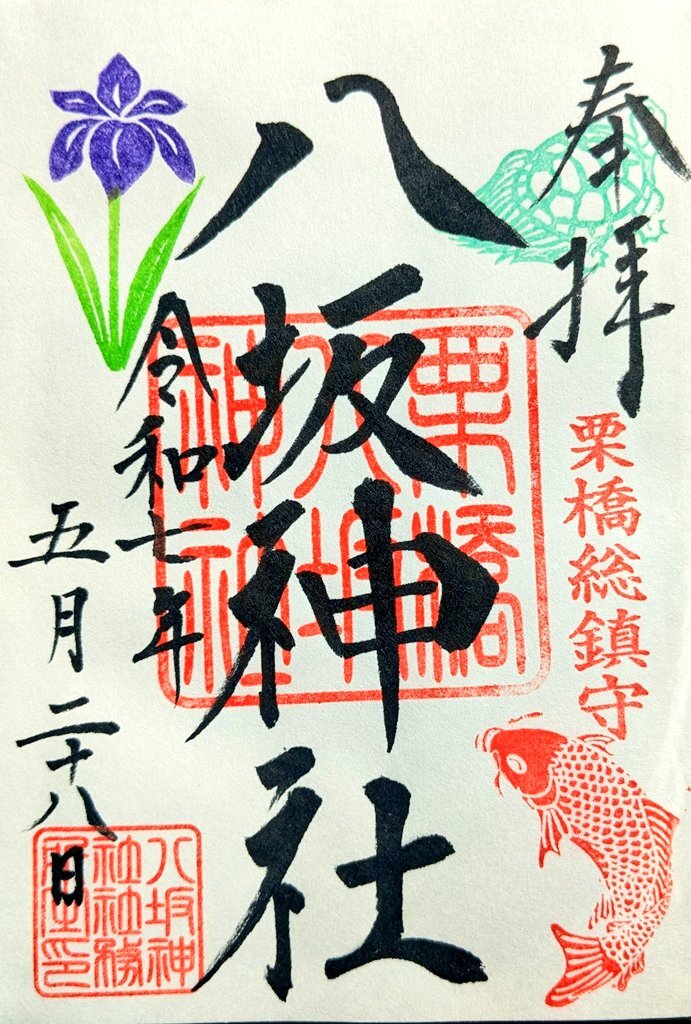 奉拝
栗橋総鎮守
八坂神社
栗橋
八坂
神社
令和七年
五月二十八日
八坂神
社社務